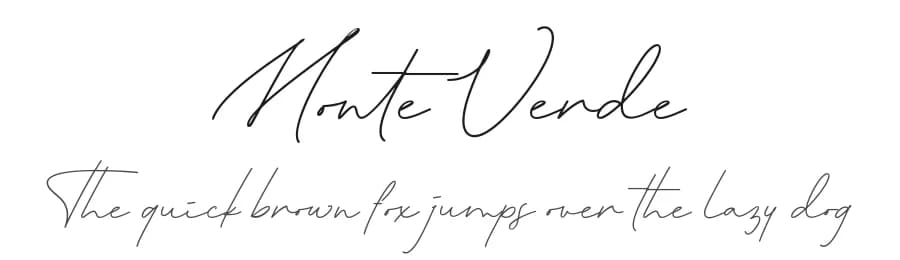 Monte Verde
The quick brown fox jumps over the lazy dog